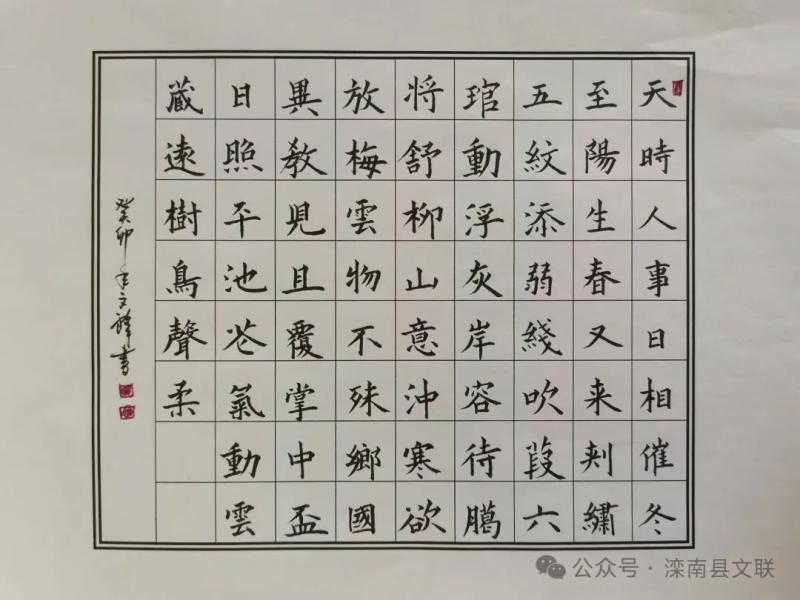 天時人事日相催冬
至陽生春又来刺繡
五紋添弱綫吹葭六
琯動浮灰岸容待臈
将舒柳山意沖寒欲
放梅雲物不殊鄉國
異教児且覆掌中盃
日照平池芲氣動雲
蔵遠樹鳥聲柔
癸卯年文書
公众号·滦南县文联